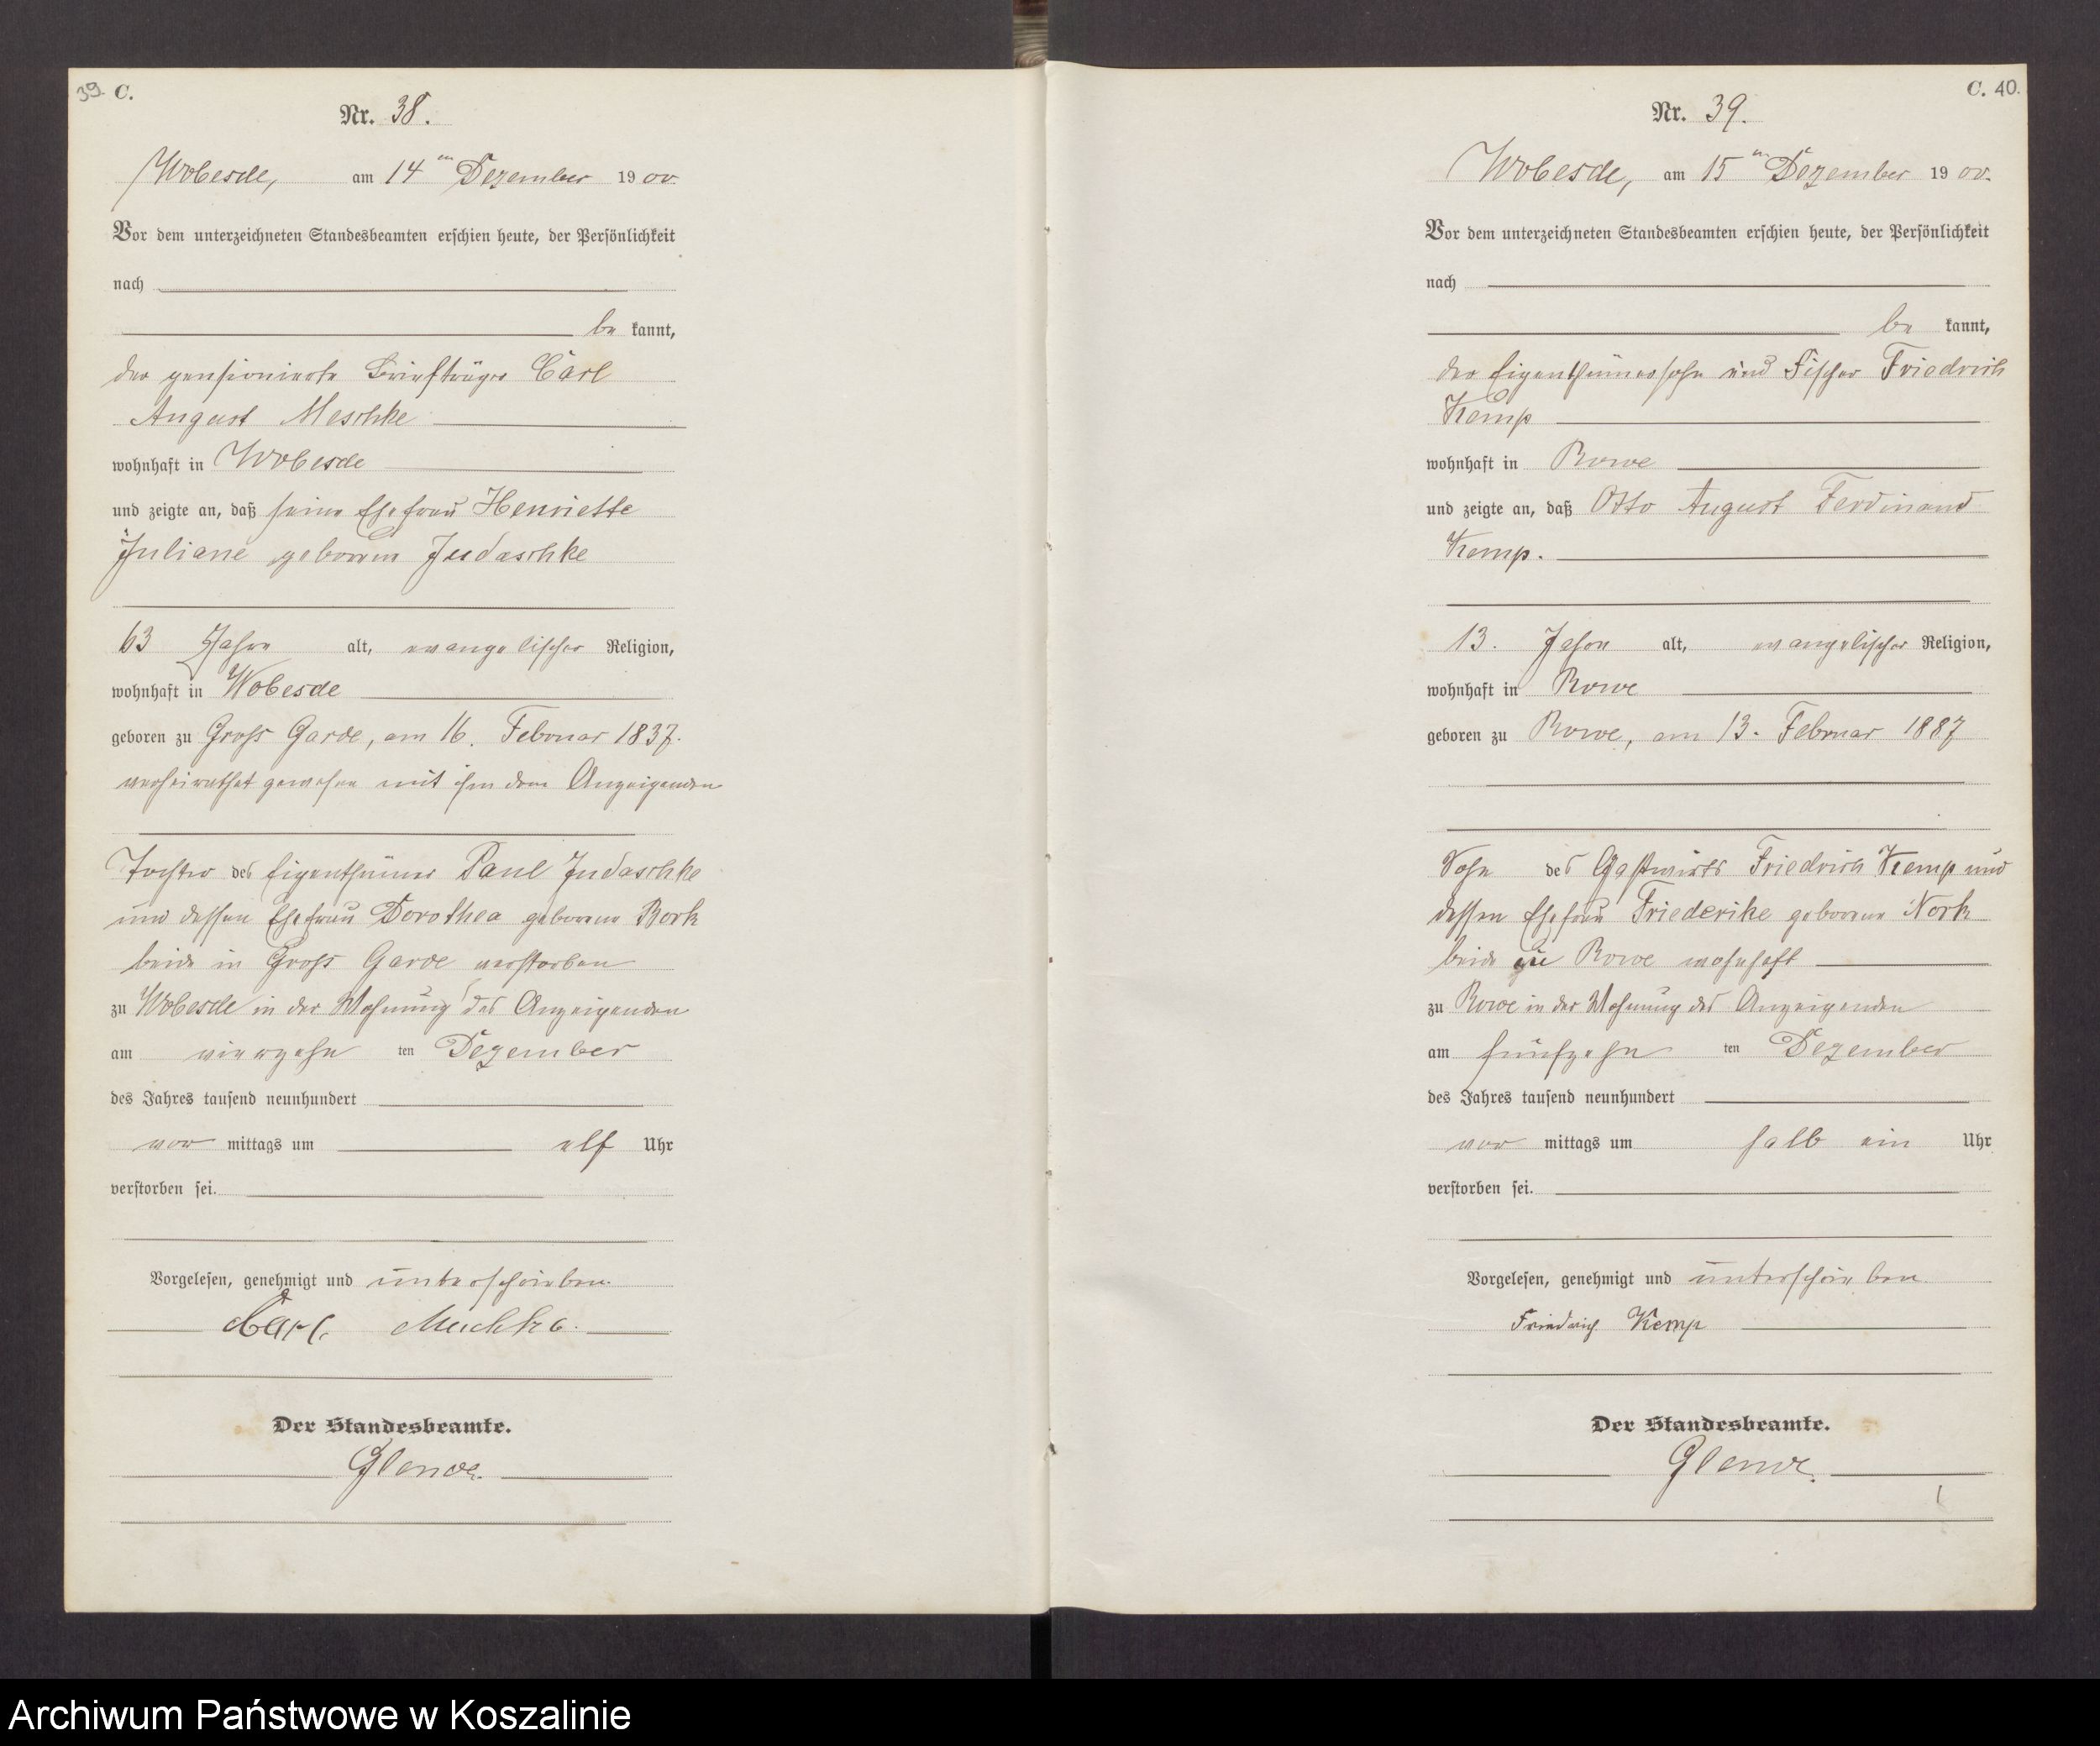 39. C.
Nr. 38.
Wobesde, am 14ten Dezember 1900.
Vor dem unterzeichneten Standesbeamten erschien heute, der Persönlichkeit
nach
be kannt,
der pensionierte Briefträger Carl
August Meschke
wohnhaft in Wobesde
und zeigte an, daß seine Ehefrau Henriette
Juliane geborene Judaschke
63 Jahre alt, evangelischer Religion,
wohnhaft in Wobesde
geboren zu Gross Garde, am 16. Februar 1837.
verheirathet gewesen mit ihm dem Anzeigenden
Tochter des Eigenthümer Paul Judaschke
und dessen Ehefrau Dorothea geborene Bork
beide in Gross Garde verstorben
zu Wobesde in der Wohnung des Anzeigenden
am vierzehn ten Dezember
des Jahres tausend neunhundert
vor mittags um elf Uhr
verstorben sei.
Vorgelesen, genehmigt und unterschrieben.
Carl Meschke.
Der Standesbeamte.
C. 40.
Nr. 39.
Wobesde, am 15ten Dezember 1900.
Vor dem unterzeichneten Standesbeamten erschien heute, der Persönlichkeit
nach
be kannt,
der Eigenthümersohn und Fischer Friedrich
Kemp
wohnhaft in Rowe
und zeigte an, daß Otto August Ferdinand
Kemp.
13. Jahre alt, evangelischer Religion,
wohnhaft in Rowe
geboren zu Rowe, am 13. Februar 1887
Sohn des Gastwirts Friedrich Kemp und
dessen Ehefrau Friederike geborene Nork
beide zu Rowe wohnhaft
zu Rowe in der Wohnung des Anzeigenden
am fünfzehn ten Dezember
des Jahres tausend neunhundert
vor mittags um halb ein Uhr
verstorben sei.
Vorgelesen, genehmigt und unterschrieben.
Friedrich Kemp
Der Standesbeamte.
Archiwum Państwowe w Koszalinie